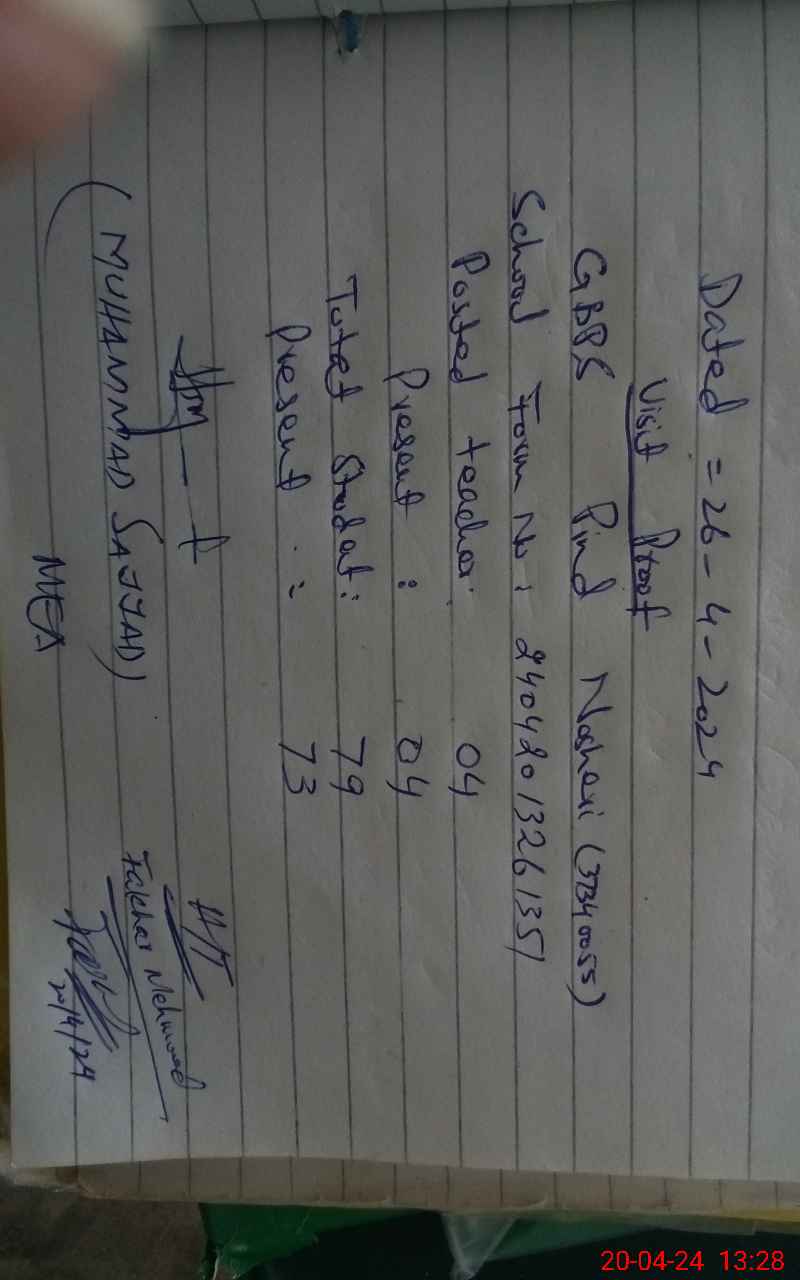 Dated = 26-4-2024
Visit Proof
GBPS Pind Nosheri (37340055)
School Form No: 2404201326135
Posted teacher: 04
Present : 04
Total Studat: 79
Present : 73
(MUHAMMAD SAJJAD)
MEA
H/T
Fakhar Mehmood
20/4/24
20-04-24 13:28